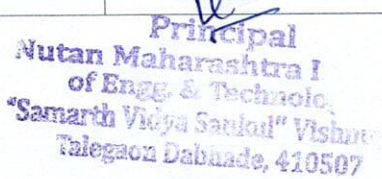 Principal
Nutan Maharashtra I
of Engg. & Technolo
"Samarth Vidya Sankul" Vishnu
Talegaon Dabhade, 410507